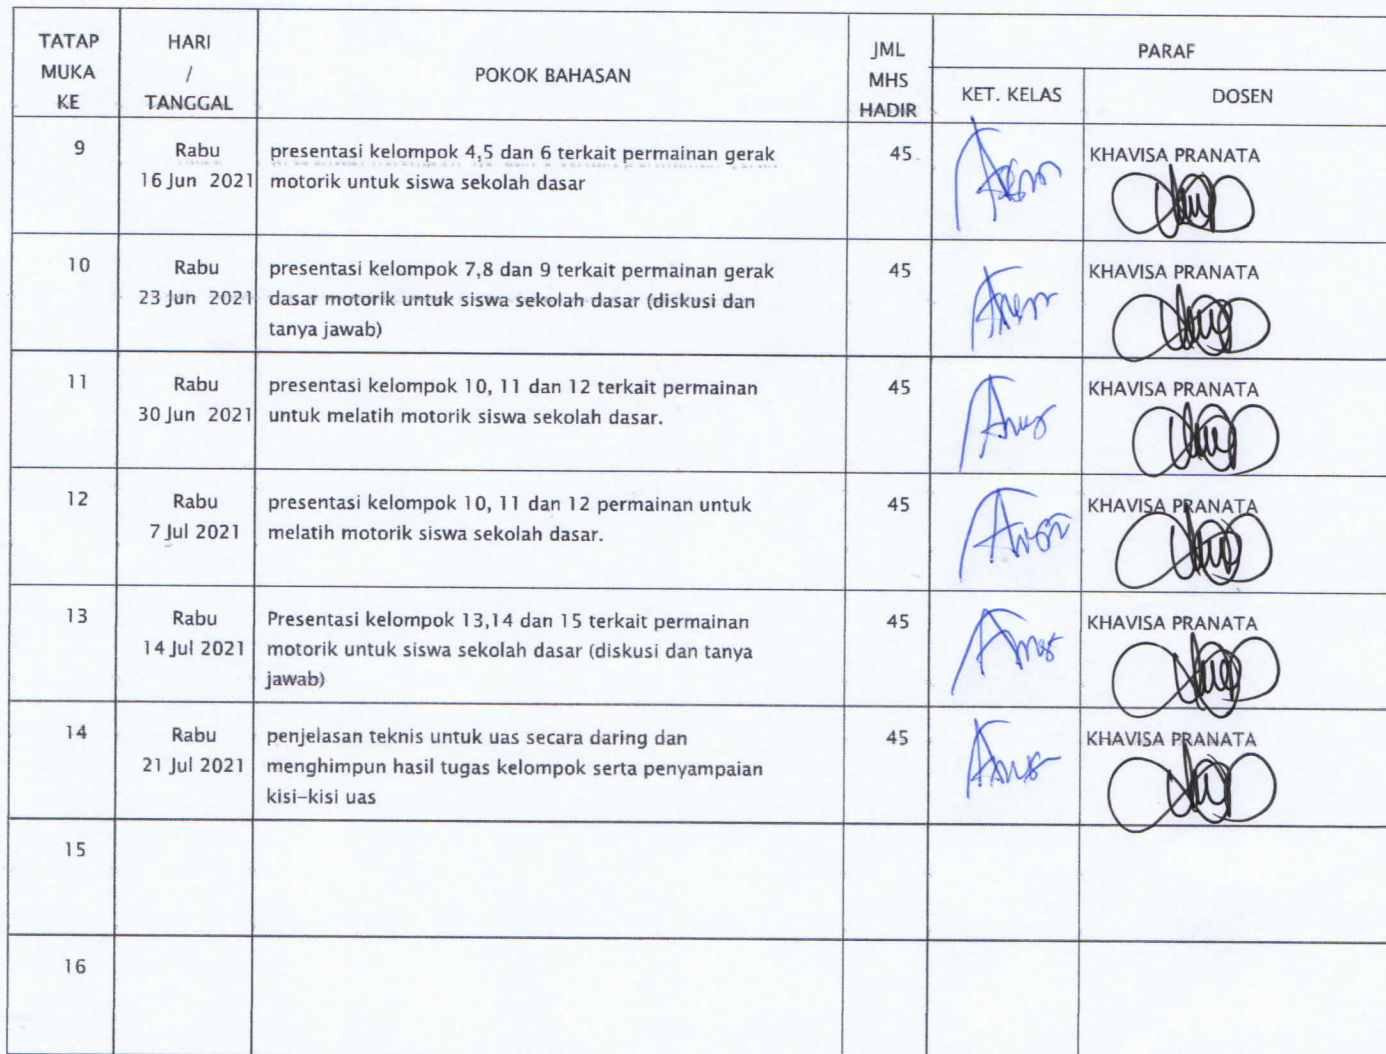 TATAP MUKA KE
HARI / TANGGAL
POKOK BAHASAN
JML MHS HADIR
PARAF
KET. KELAS
DOSEN
9
Rabu
16 Jun 2021
presentasi kelompok 4,5 dan 6 terkait permainan gerak
motorik untuk siswa sekolah dasar
45
KHAVISA PRANATA
10
Rabu
23 Jun 2021
presentasi kelompok 7,8 dan 9 terkait permainan gerak
dasar motorik untuk siswa sekolah dasar (diskusi dan
tanya jawab)
45
KHAVISA PRANATA
11
Rabu
30 Jun 2021
presentasi kelompok 10, 11 dan 12 terkait permainan
untuk melatih motorik siswa sekolah dasar.
45
KHAVISA PRANATA
12
Rabu
7 Jul 2021
presentasi kelompok 10, 11 dan 12 permainan untuk
melatih motorik siswa sekolah dasar.
45
KHAVISA PRANATA
13
Rabu
14 Jul 2021
Presentasi kelompok 13,14 dan 15 terkait permainan
motorik untuk siswa sekolah dasar (diskusi dan tanya
jawab)
45
KHAVISA PRANATA
14
Rabu
21 Jul 2021
penjelasan teknis untuk uas secara daring dan
menghimpun hasil tugas kelompok serta penyampaian
kisi-kisi uas
45
KHAVISA PRANATA
15
16